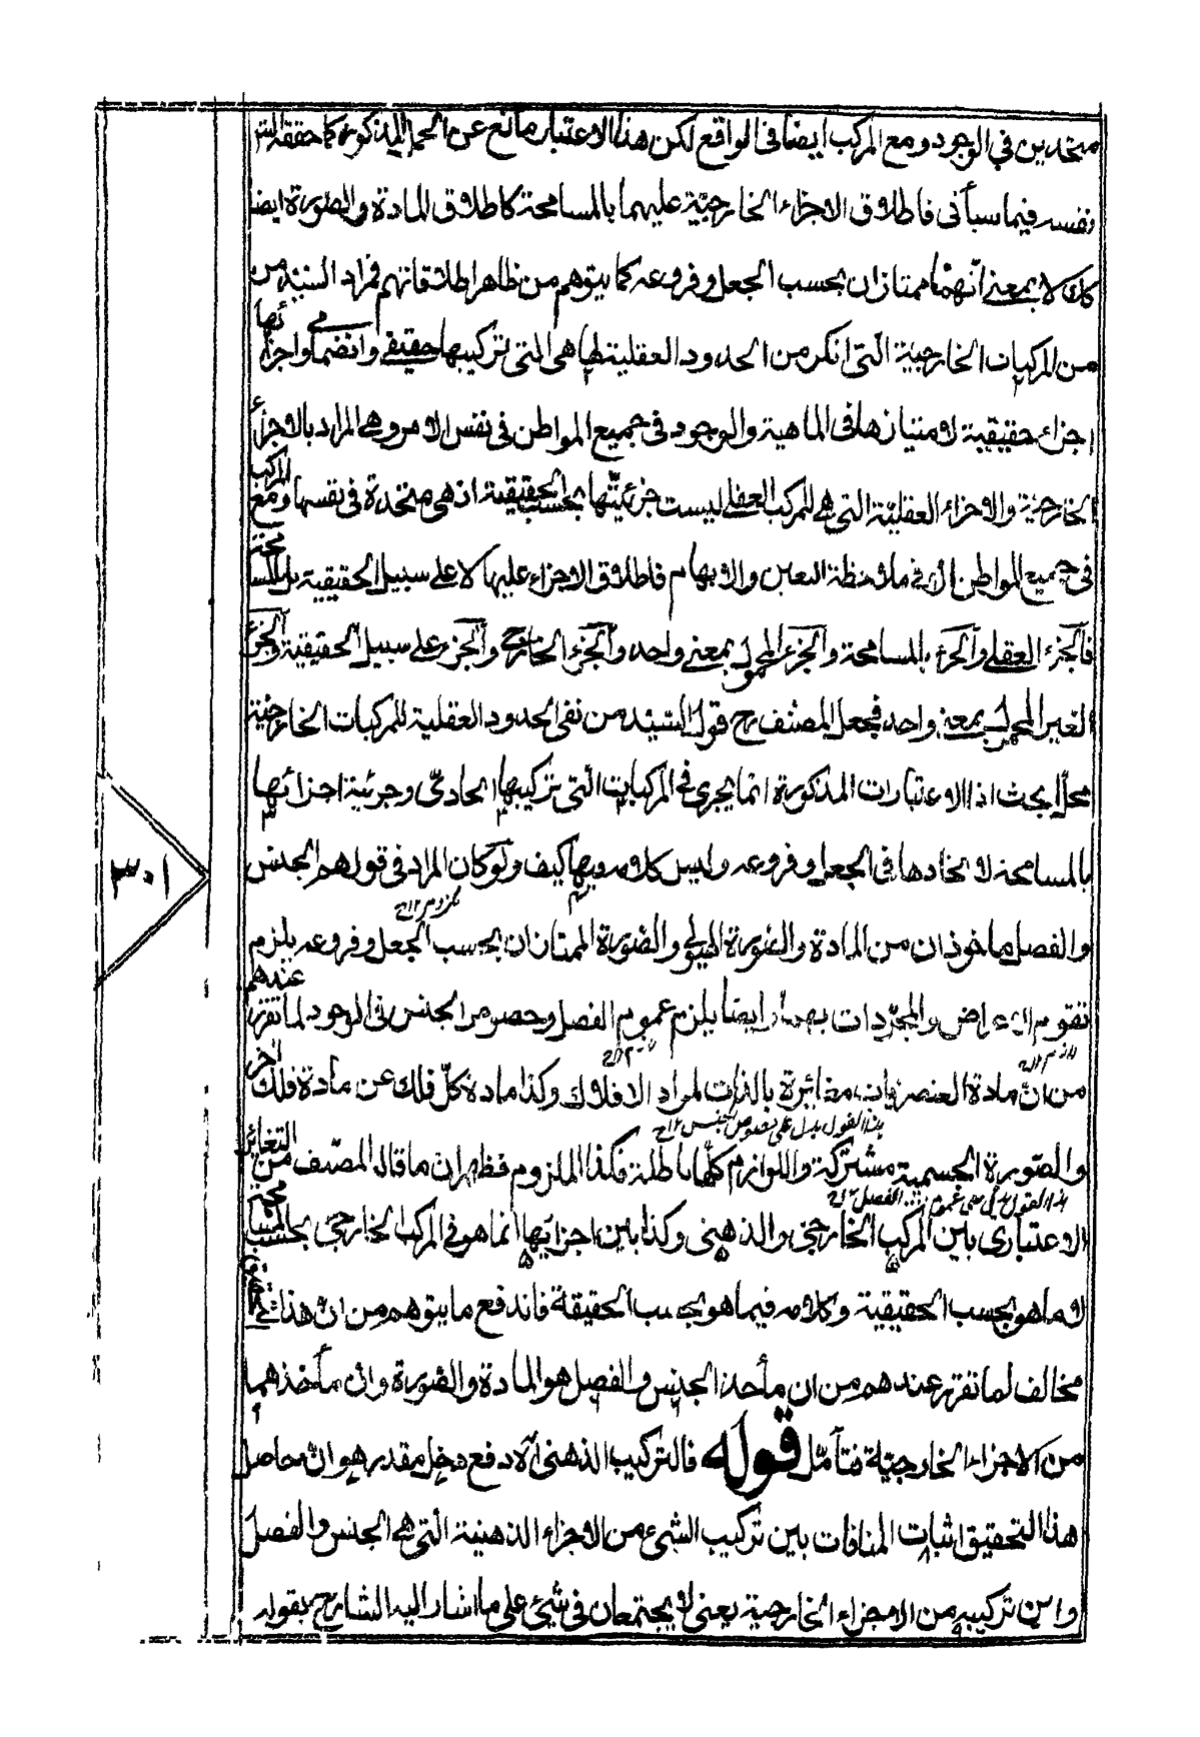 متحدين في الوجود ومع المركب ايضا في الواقع لكن هذا الاعتبار مانع عن الحمل المذكور كما حققه
نفسه فيما سيأتى فاطلاق الاجزاء الخارجيّة عليهما بالمسامحة كاطلاق المادة والصورة ايضا
كك لا بمعنى انّهما ممتازان بحسب الجعل وفروعه كما يتوهم من ظاهر اطلاقاتهم فمراد السيد من
من المركبات الخارجية الّتى انكر من الحدود العقلية لها هى التى تركيبها حقيقى وانضمامى واجزائها
اجزاء حقيقية لامتيازها فى الماهية والوجود فى جميع المواطن فى نفس الامر وهى المراد بالاجزاء
الخارجيّة والاجزاء العقليّة التى هى للمركب العقلى ليست جزئيّتها بحسب الحقيقية اذ هى متحدة فى نفسها ومع المركب
فى جميع المواطن الا فى ملاحظة التعين والابهام فاطلاق الاجزاء عليها لا على سبيل الحقيقية بل المسامحة
فالجزء العقلى والجزء بالمسامحة والجزء المحمول بمعنى واحد والجزء الخارجى والجزء على سبيل الحقيقية والجزء
الغير المحمول بمعنى واحد فجعل المصنف رح قول السيد من نفى الحدود العقلية للمركبات الخارجيّة
محلّ بحث اذ الاعتبارات المذكورة انما يجرى فى المركبات الّتى تركيبها اتحادىّ وجزئية اجزائها
بالمسامحة لاتحادها فى الجعل وفروعه وليس كلامه فيها كيف ولو كان المراد فى قولهم الجنس
والفصل ماخوذان من المادة والصورة الهيولى والصورة الممتازان بحسب الجعل وفروعه يلزم
تقوم الاعراض والمجرّدات بهما وايضا يلزم عموم الفصل وخصوص الجنس فى الوجود لما تقرر عندهم
من انّ مادة العنصريات مغائرة بالذات لمواد الافلاك وكذا مادة كلّ فلك عن مادة فلك آخر
والصّورة الجسمية مشتركة واللوازم كلّها باطلة فكذا الملزوم فظهر ان ما قال المصنّف من التغائر
الاعتبارى بين المركب الخارجى والذهنى وكذا بين اجزائها انما هو فى المركب الخارجى بحسب المسامحة
لا ما هو بحسب الحقيقية وكلامه فيما هو بحسب الحقيقة فاندفع ما يتوهم من ان هذا
مخالف لما تقرر عندهم من ان مأخذ الجنس والفصل هو المادة والصورة وان مأخذهما
من الاجزاء الخارجيّة فتأمّل قوله فالتركيب الذهنى آلا دفع دخل مقدر هو انّ حاصل
هذا التحقيق اثبات المنافات بين تركيب الشىء من الاجزاء الذهنية الّتى هى الجنس والفصل
وابين تركيبه من الاجزاء الخارجية يعنى لا يجتمعان فى شئ على ما اشار اليه الشارح بقوله
٣٠١